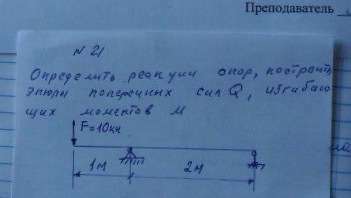 Преподаватель
N 21
Определить реакции опор, построить
эпюры поперечных сил Q, изгибаю
щих моментов М
F=10кн
1м
2м